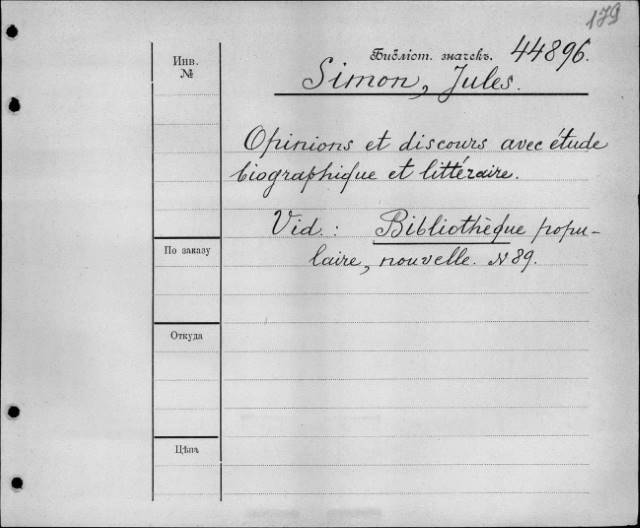 179
Инв.
№
Библіот. значекъ. 44896.
Simon, Jules.
Opinions et discours avec étude
biographique et littéraire.
Vid.: Bibliothèque popu-
laire, nouvelle. N 89.
По заказу
Откуда
Цѣнъ